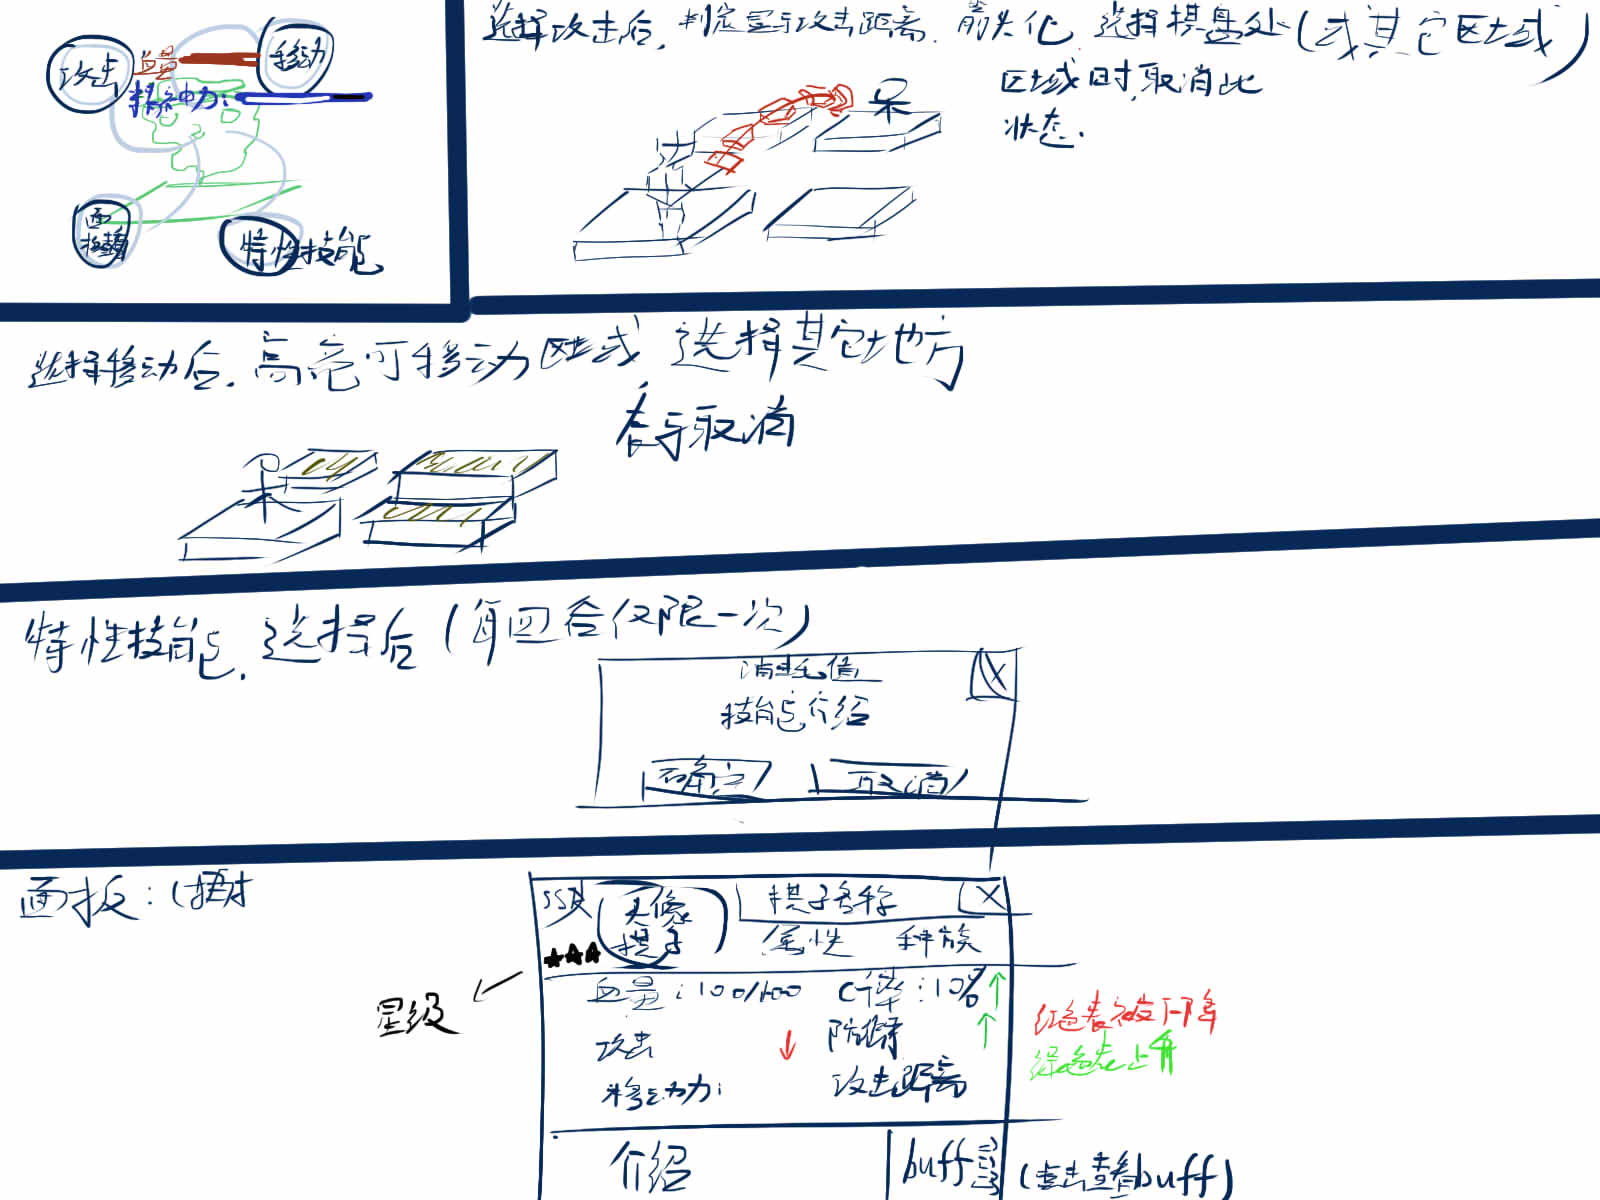 攻击
血量
移动
精神力:
面板
特性技能
选择攻击后,判定显示攻击距离,箭头化,选择棋盘处(或其它区域)
区域时,取消此
状态.
选择移动后,高亮可移动区域 选择其它地方
表示取消
特性技能,选择后(每回合仅限一次)
消耗值
X
技能介绍
确定
取消
面板:
SSR
头像
棋子
棋子名称
X
属性
种族
★★★
星级
血量:100/100
C率:10%
攻击
防御
移动力:
攻击距离
红色表被下降
绿色表上升
介绍
buff
(点击查看buff)